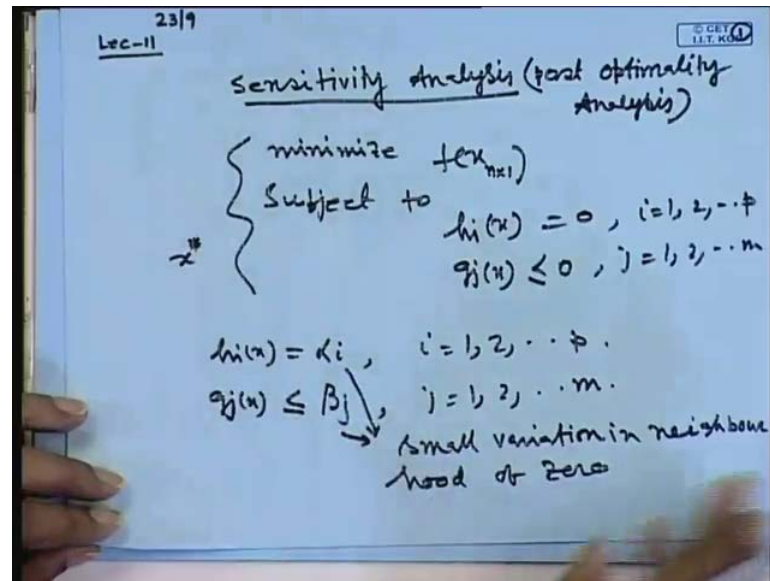 23/9
Lec-11
© CET
I.I.T. KGP
1
Sensitivity Analysis (post optimality
Analysis)
minimize f(x_{n×1})
Subject to
hi(x) = 0, i=1, 2, ... p
x* gj(x) ≤ 0, j=1, 2, ... m
hi(x) = αi, i=1, 2, ... p.
gj(x) ≤ βj, j=1, 2, ... m.
small variation in neighbour
hood of zero